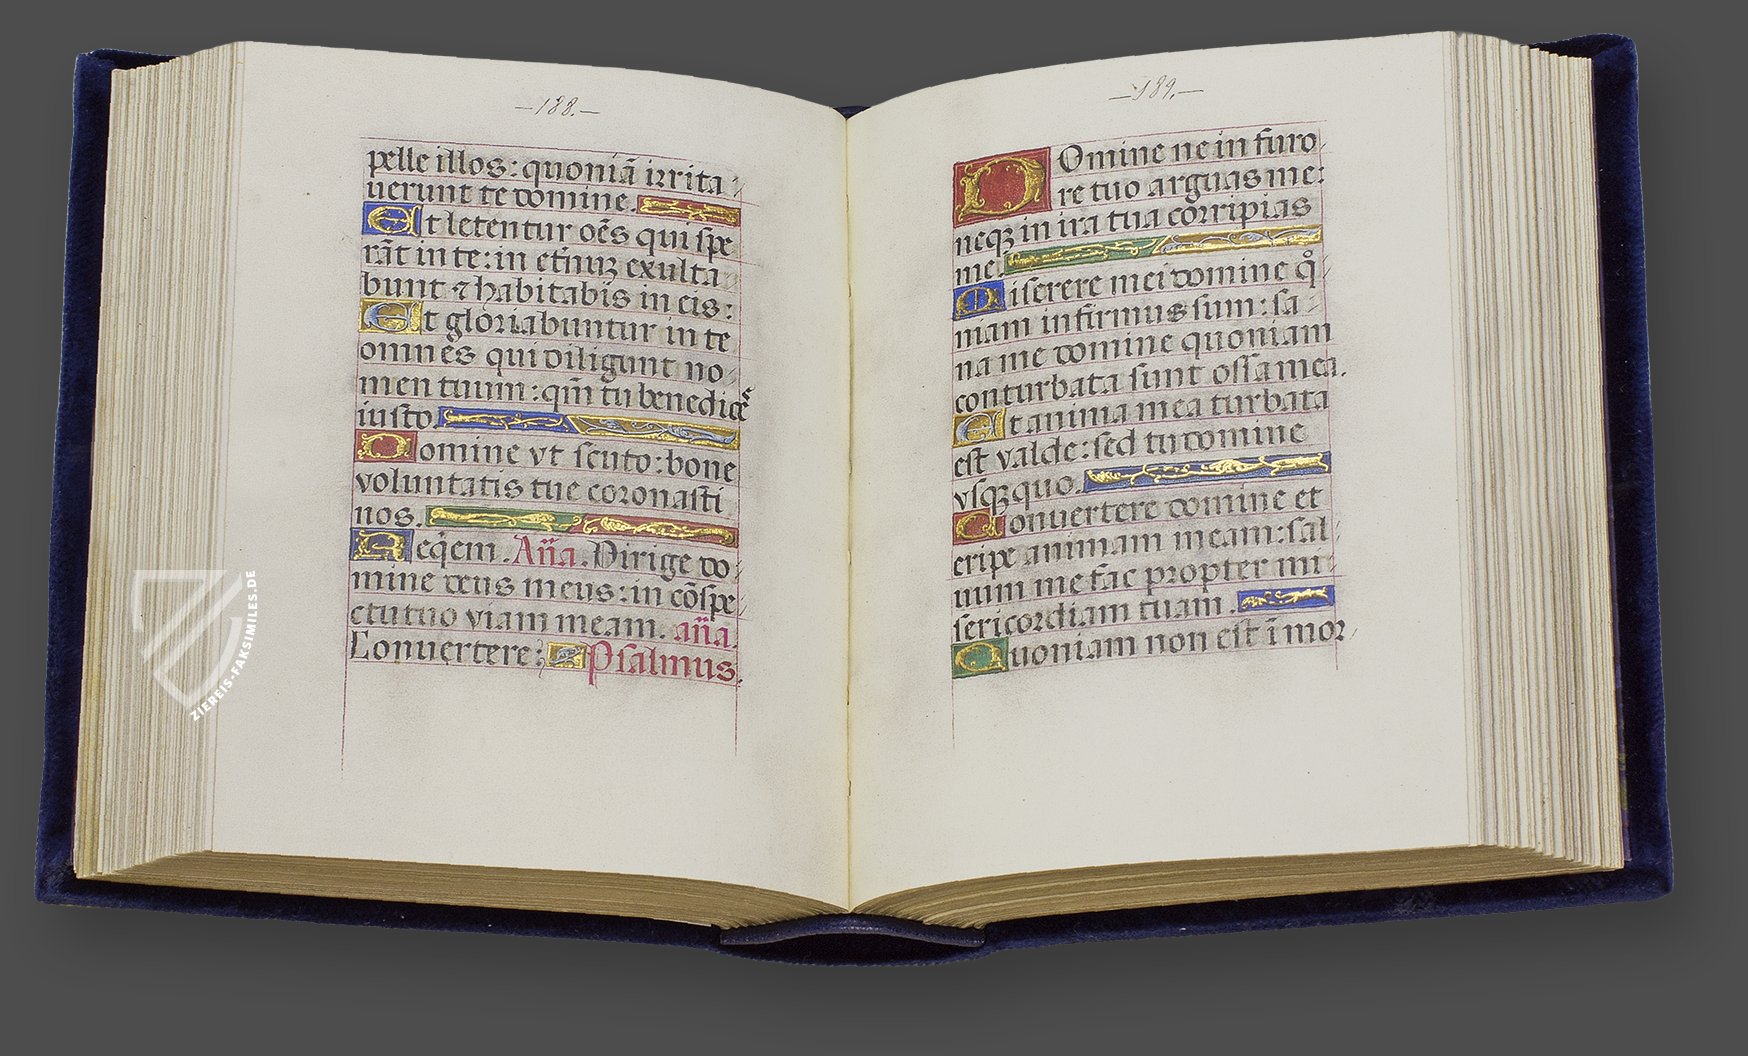 —188.—
pelle illos: quoniã irrita
uerunt te domine.
Et letentur oẽs qui spe
rãt in te: in eťnuꝫ exulta
bunt ⁊ habitabis in eis:
Et gloriabuntur in te
omnes qui diligunt no
men tuum: qm̃ tu benedices
iusto.
Domine vt scuto: bone
voluntatis tue coronasti
nos.
Req̃em. Añа. Dirige do
mine deus meus: in cõspe
ctu tuo viam meam. añа.
Conuertere: Psalmus.
—189.—
Domine ne in furo
re tuo arguas me:
neqꝫ in ira tua corripias
me.
Miserere mei domine q̊
niam infirmus sum: sa
na me domine quoniam
conturbata sunt ossa mea.
Et anima mea turbata
est valde: sed tu domine
vsqꝫquo.
Conuertere domine et
eripe animam meam: sal
uum me fac propter mi
sericordiam tuam.
Quoniam non est ĩ mor
ZIEREIS-FAKSIMILES.DE